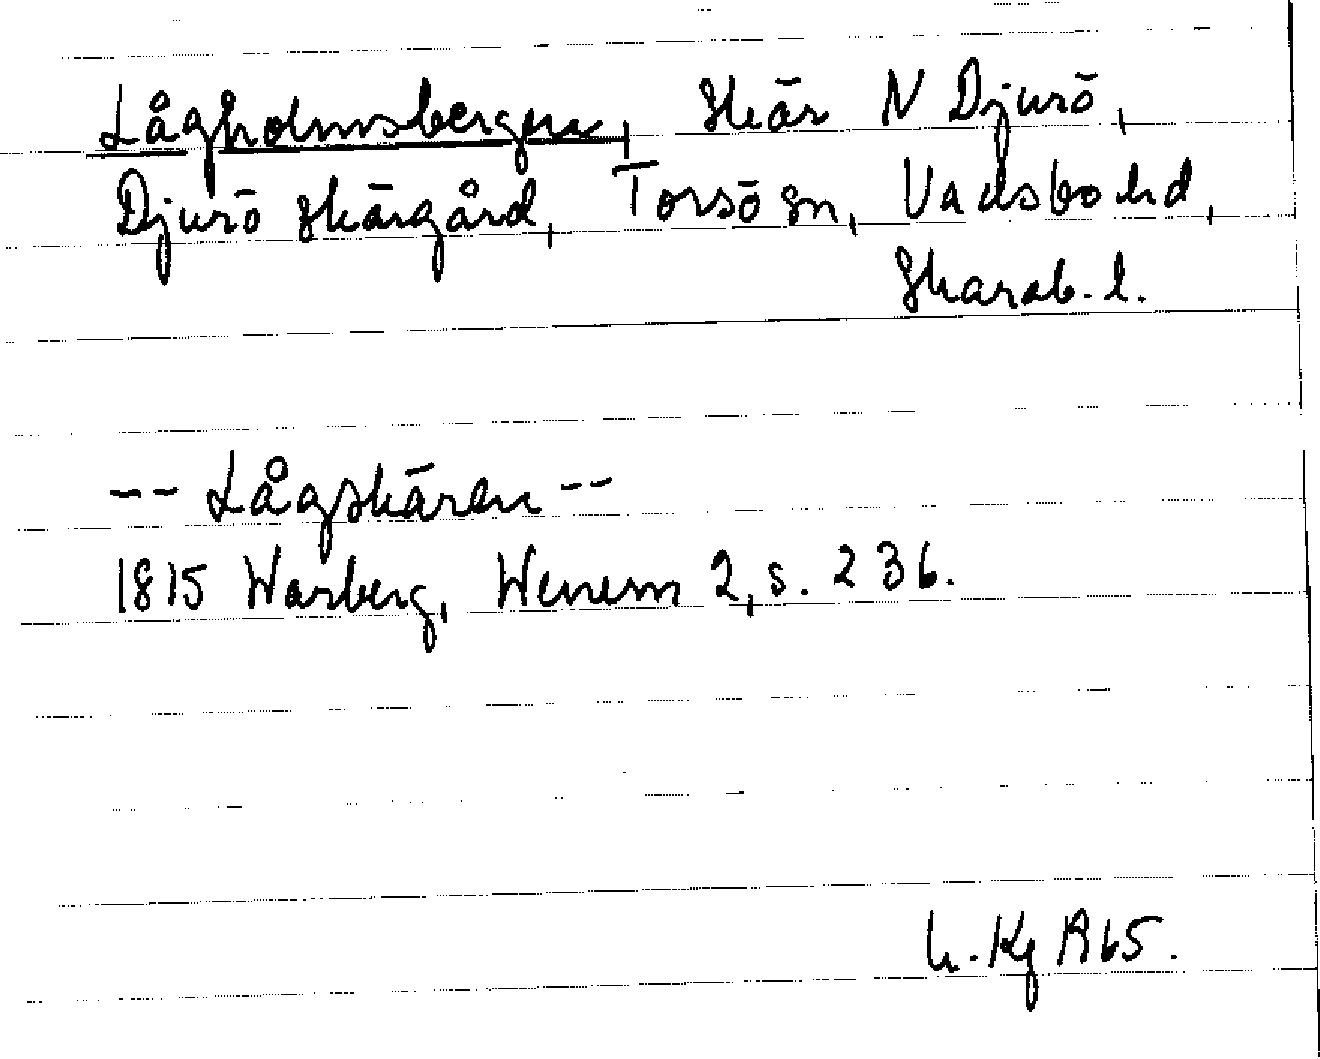 Lågholmsbergen, skär N Djurö,
Djurö skärgård, Torsö sn, Vadsbo hd,
Skarab. l.
-- Lågskären --
1815 Warberg, Wenern 2, s. 236.
Kg 1965.